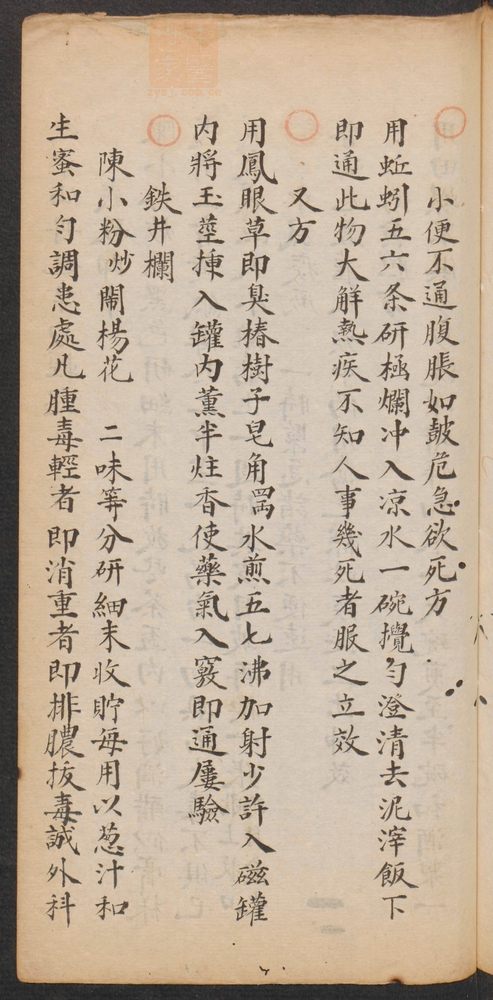 小便不通腹脹如皷危急欲死方
用蚯蚓五六条研極爛冲入凉水一碗攪勻澄清去泥滓飯下
即通此物大觧熱疾不知人事幾死者服之立效
又方
用鳳眼草即臭椿樹子皂角煎水煎五七沸加射少許入磁罐
内將玉莖揀入罐内薰半炷香使藥氣入竅即通屢驗
鉄井欄
陳小粉炒 鬧楊花 二味等分研細末收貯每用以葱汁和
生蜜和勻調患處凡腫毒輕者即消重者即排膿拔毒誠外科